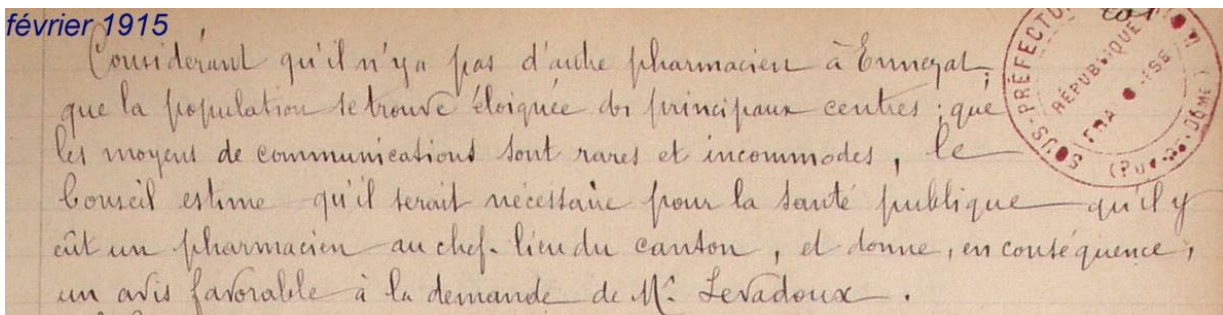 février 1915
Considérant qu'il n'y a pas d'autre pharmacien à Ennezat,
que la population se trouve éloignée des principaux centres ; que
les moyens de communications sont rares et incommodes, le
Conseil estime qu'il serait nécessaire pour la santé publique qu'il y
eût un pharmacien au chef-lieu du canton, et donne, en conséquence,
un avis favorable à la demande de Mr. Levadoux.
SOUS-PRÉFECTURE
RÉPUBLIQUE
(PUY-DE-DÔME)